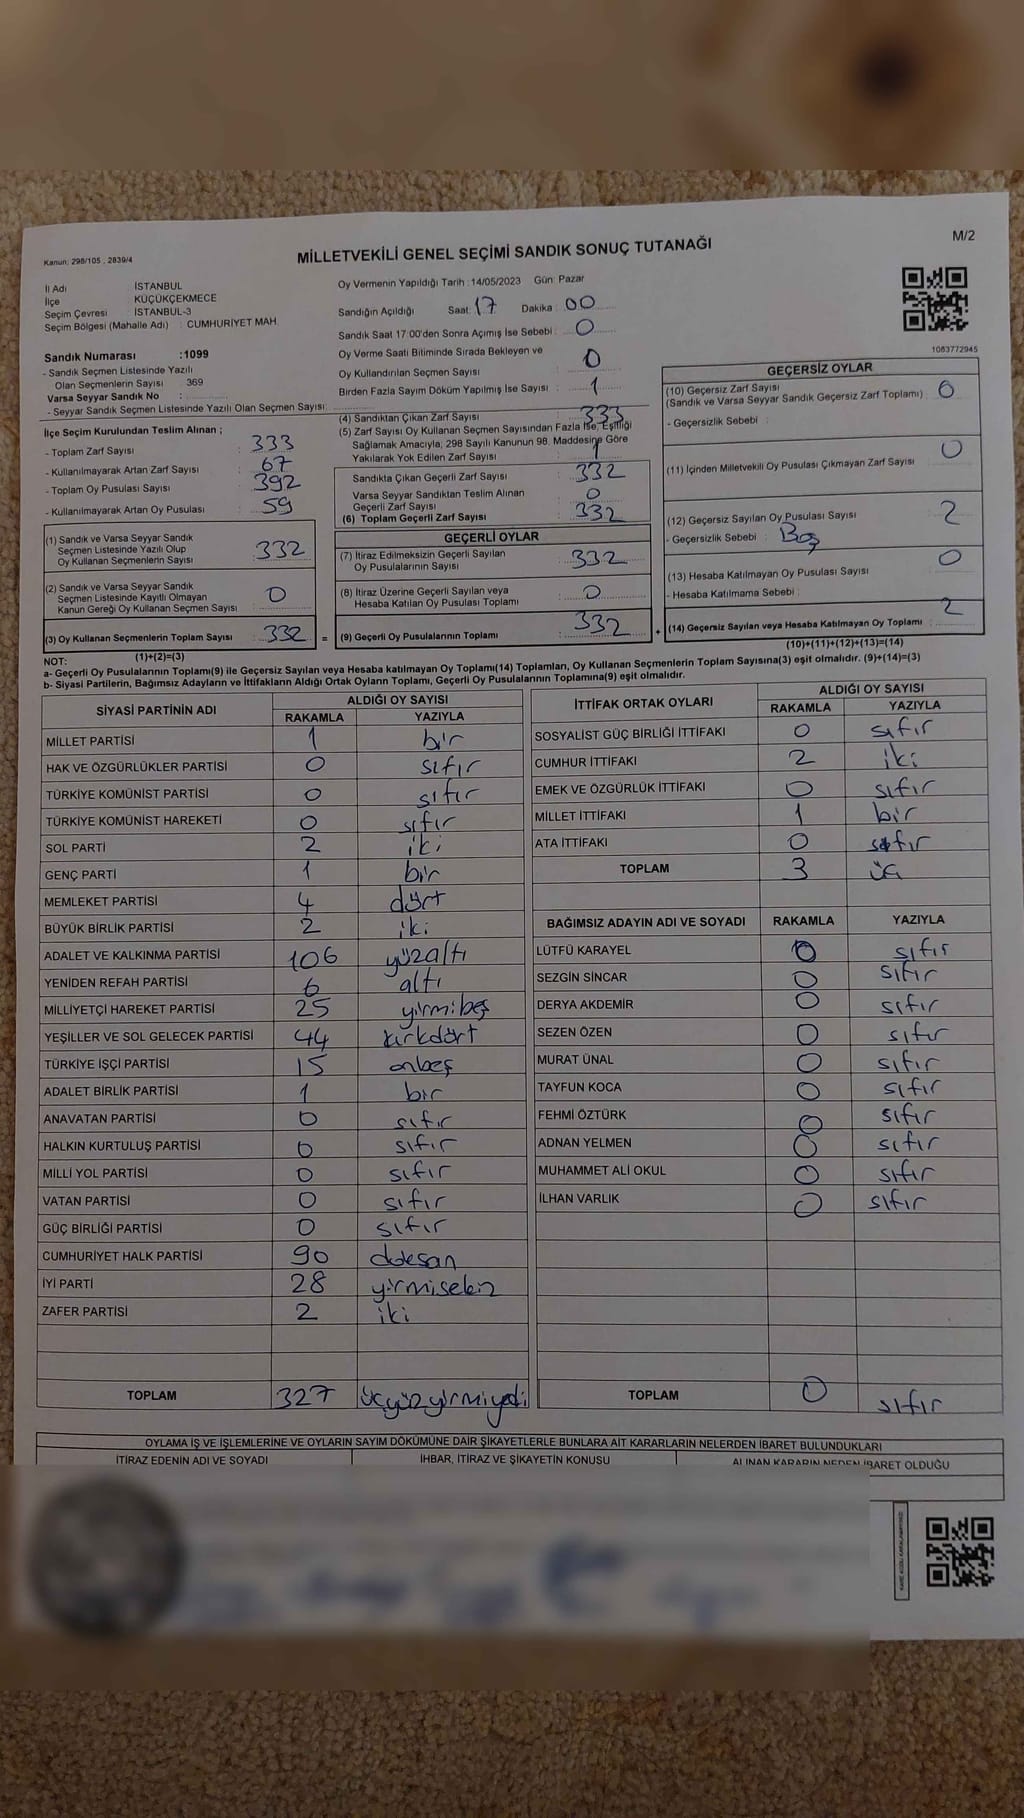 M/2
Kanun: 298/105 , 2839/4
MİLLETVEKİLİ GENEL SEÇİMİ SANDIK SONUÇ TUTANAĞI
İl Adı İSTANBUL
İlçe KÜÇÜKÇEKMECE
Seçim Çevresi : İSTANBUL-3
Seçim Bölgesi (Mahalle Adı) : CUMHURİYET MAH
Sandık Numarası :1099
- Sandık Seçmen Listesinde Yazılı
Olan Seçmenlerin Sayısı : 369
Varsa Seyyar Sandık No :
- Seyyar Sandık Seçmen Listesinde Yazılı Olan Seçmen Sayısı:
Oy Vermenin Yapıldığı Tarih : 14/05/2023 Gün: Pazar
Sandığın Açıldığı Saat: 17 Dakika : 00
Sandık Saat 17:00'den Sonra Açımış İse Sebebi : 0
Oy Verme Saati Bitiminde Sırada Bekleyen ve
Oy Kullandırılan Seçmen Sayısı : 0
Birden Fazla Sayım Döküm Yapılmış İse Sayısı : 1
1083772945
İlçe Seçim Kurulundan Teslim Alınan ;
- Toplam Zarf Sayısı : 333
- Kullanılmayarak Artan Zarf Sayısı : 67
- Toplam Oy Pusulası Sayısı : 392
- Kullanılmayarak Artan Oy Pusulası : 59
(1) Sandık ve Varsa Seyyar Sandık
Seçmen Listesinde Yazılı Olup
Oy Kullanan Seçmenlerin Sayısı : 332
(2) Sandık ve Varsa Seyyar Sandık
Seçmen Listesinde Kayıtlı Olmayan
Kanun Gereği Oy Kullanan Seçmen Sayısı : 0
(3) Oy Kullanan Seçmenlerin Toplam Sayısı : 332 =
(1)+(2)=(3)
(4) Sandıktan Çıkan Zarf Sayısı : 333
(5) Zarf Sayısı Oy Kullanan Seçmen Sayısından Fazla İse, Eşitliği
Sağlamak Amacıyla; 298 Sayılı Kanunun 98. Maddesine Göre
Yakılarak Yok Edilen Zarf Sayısı : 1
Sandıkta Çıkan Geçerli Zarf Sayısı : 332
Varsa Seyyar Sandıktan Teslim Alınan
Geçerli Zarf Sayısı : 0
(6) Toplam Geçerli Zarf Sayısı : 332
GEÇERLİ OYLAR
(7) İtiraz Edilmeksizin Geçerli Sayılan
Oy Pusulalarının Sayısı : 332
(8) İtiraz Üzerine Geçerli Sayılan veya
Hesaba Katılan Oy Pusulası Toplamı : 0
(9) Geçerli Oy Pusulalarının Toplamı : 332 +
GEÇERSİZ OYLAR
(10) Geçersiz Zarf Sayısı
(Sandık ve Varsa Seyyar Sandık Geçersiz Zarf Toplamı) : 0
- Geçersizlik Sebebi :
(11) İçinden Milletvekili Oy Pusulası Çıkmayan Zarf Sayısı : 0
(12) Geçersiz Sayılan Oy Pusulası Sayısı : 2
- Geçersizlik Sebebi : Boş
(13) Hesaba Katılmayan Oy Pusulası Sayısı : 0
- Hesaba Katılmama Sebebi :
(14) Geçersiz Sayılan veya Hesaba Katılmayan Oy Toplamı : 2
(10)+(11)+(12)+(13)=(14)
NOT:
a- Geçerli Oy Pusulalarının Toplamı(9) ile Geçersiz Sayılan veya Hesaba katılmayan Oy Toplamı(14) Toplamları, Oy Kullanan Seçmenlerin Toplam Sayısına(3) eşit olmalıdır. (9)+(14)=(3)
b- Siyasi Partilerin, Bağımsız Adayların ve İttifakların Aldığı Ortak Oyların Toplamı, Geçerli Oy Pusulalarının Toplamına(9) eşit olmalıdır.
SİYASİ PARTİNİN ADI ALDIĞI OY SAYISI
RAKAMLA YAZIYLA
MİLLET PARTİSİ 1 bir
HAK VE ÖZGÜRLÜKLER PARTİSİ 0 sıfır
TÜRKİYE KOMÜNİST PARTİSİ 0 sıfır
TÜRKİYE KOMÜNİST HAREKETİ 0 sıfır
SOL PARTİ 2 iki
GENÇ PARTİ 1 bir
MEMLEKET PARTİSİ 4 dört
BÜYÜK BİRLİK PARTİSİ 2 iki
ADALET VE KALKINMA PARTİSİ 106 yüzaltı
YENİDEN REFAH PARTİSİ 6 altı
MİLLİYETÇİ HAREKET PARTİSİ 25 yirmibeş
YEŞİLLER VE SOL GELECEK PARTİSİ 44 kırkdört
TÜRKİYE İŞÇİ PARTİSİ 15 onbeş
ADALET BİRLİK PARTİSİ 1 bir
ANAVATAN PARTİSİ 0 sıfır
HALKIN KURTULUŞ PARTİSİ 0 sıfır
MİLLİ YOL PARTİSİ 0 sıfır
VATAN PARTİSİ 0 sıfır
GÜÇ BİRLİĞİ PARTİSİ 0 sıfır
CUMHURİYET HALK PARTİSİ 90 doksan
İYİ PARTİ 28 yirmisekiz
ZAFER PARTİSİ 2 iki
TOPLAM 327 üçyüzyirmiyedi
İTTİFAK ORTAK OYLARI ALDIĞI OY SAYISI
RAKAMLA YAZIYLA
SOSYALİST GÜÇ BİRLİĞİ İTTİFAKI 0 sıfır
CUMHUR İTTİFAKI 2 iki
EMEK VE ÖZGÜRLÜK İTTİFAKI 0 sıfır
MİLLET İTTİFAKI 1 bir
ATA İTTİFAKI 0 sıfır
TOPLAM 3 üç
BAĞIMSIZ ADAYIN ADI VE SOYADI RAKAMLA YAZIYLA
LÜTFÜ KARAYEL 0 sıfır
SEZGİN SİNCAR 0 sıfır
DERYA AKDEMİR 0 sıfır
SEZEN ÖZEN 0 sıfır
MURAT ÜNAL 0 sıfır
TAYFUN KOCA 0 sıfır
FEHMİ ÖZTÜRK 0 sıfır
ADNAN YELMEN 0 sıfır
MUHAMMET ALİ OKUL 0 sıfır
İLHAN VARLIK 0 sıfır
TOPLAM 0 sıfır
OYLAMA İŞ VE İŞLEMLERİNE VE OYLARIN SAYIM DÖKÜMÜNE DAİR ŞİKAYETLERLE BUNLARA AİT KARARLARIN NELERDEN İBARET BULUNDUKLARI
İTİRAZ EDENİN ADI VE SOYADI İHBAR, İTİRAZ VE ŞİKAYETİN KONUSU ALINAN KARARIN NEDEN İBARET OLDUĞU